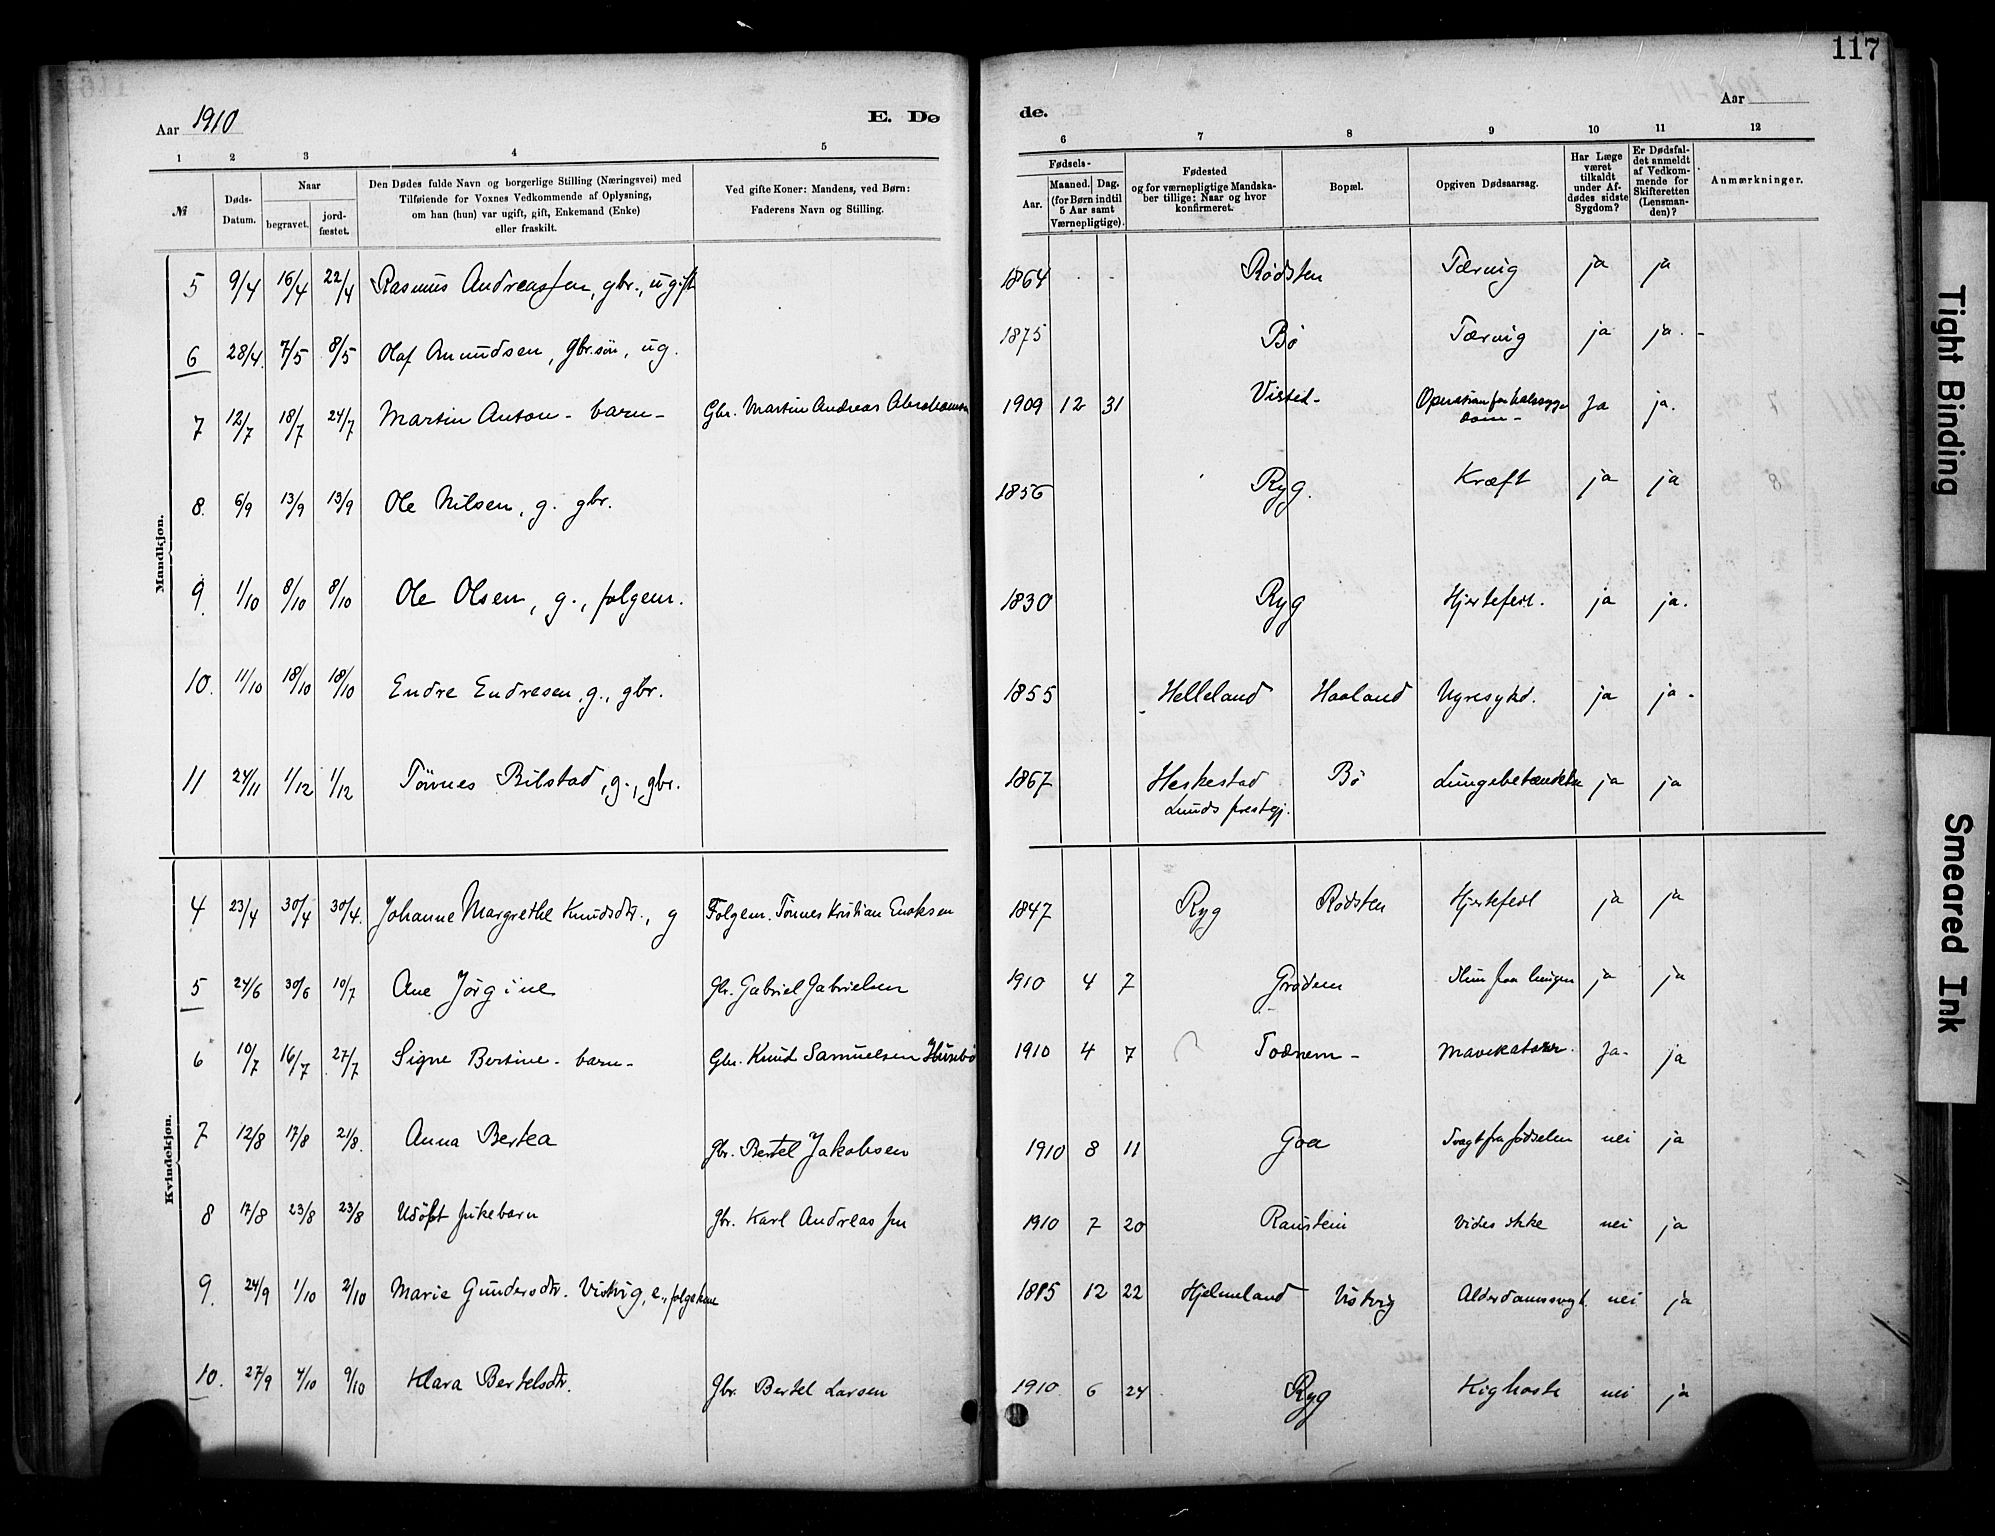 117
Aar 1910
E. Dø
de.
Aar
1 2 3 4 5 6 7 8 9 10 11 12
№
Døds-
Datum.
Naar
begravet.
jord-
fæstet.
Den Dødes fulde Navn og borgerlige Stilling (Næringsvei) med
Tilføiende for Voxnes Vedkommende af Oplysning,
om han (hun) var ugift, gift, Enkemand (Enke)
eller fraskilt.
Ved gifte Koner: Mandens, ved Børn:
Faderens Navn og Stilling.
Fødsels-
Aar.
Maaned. Dag.
(for Børn indtil
5 Aar samt
Værnepligtige).
Fødested
og for værnepligtige Mandska-
ber tillige: Naar og hvor
konfirmeret.
Bopæl.
Opgiven Dødsaarsag.
Har Læge
været
tilkaldt
under Af-
dødes sidste
Sygdom?
Er Dødsfal-
det anmeldt
af Vedkom-
mende for
Skifteretten
(Lensman-
den)?
Anmærkninger.
Mandkjøn.
5 9/4 16/4 22/4 Rasmus Andreassen, gbr., ugift 1864 Rødsten Tæring ja ja
6 28/4 7/5 8/5 Olaf Amundsen, gbr.søn, ug. 1875 Bø Tæring ja ja.
7 12/7 18/7 24/7 Martin Anton - barn - Gbr. Martin Andreas Abrahamsen 1909 12 31 Visted - Operation for halssyge
dom - Ja ja.
8. 6/9 13/9 13/9 Ole Nilsen, g. gbr. 1856 Ryg. Kræft ja ja
9. 1/10 8/10 8/10 Ole Olsen, g., folgem. 1830 Ryg Hjertefeil. ja ja.
10. 11/10 18/10 18/10 Endre Endresen, g., gbr. 1855 Helleland Haaland Nyresykd. ja ja -
11 24/11 1/12 1/12 Tønnes Bilstad, g., gbr. 1867 Heskestad
Lunds prestgj. Bø Lungebetændelse ja ja
Kvindekjøn.
4 23/4 30/4 30/4. Johanne Margrethe Knudsdtr., g Folgem. Tønnes Kristian Enoksen 1847 Ryg Rødsten Hjertefeil ja ja
5 24/6 30/6 10/7 Ane Jørgine Gbr. Gabriel Gabrielsen 1910 4 7 Grødem Slim paa lungen ja ja
6 10/7 16/7 27/7 Signe Bertine - barn - Gbr. Knud Samuelsen Husebø 1910 4 7 Todnem - Mavekatarr. Ja - ja
7 12/8 17/8 21/8. Anna Bertea Gbr. Bertel Jakobsen 1910 8 11 Goa Svagt fra fødselen nei ja
8 17/8 23/8 23/8 Udøpt pikebarn gbr. Karl Andreassen 1910 7 20 Raustein Vides ikke nei ja
9. 24/9 1/10 2/10 Marie Gundersdtr. Vistvig, e., folgekone 1815 12 22 Hjelmeland Vistvig Alderdomssvagh. nei ja
10. 27/9 4/10 9/10 Klara Bertelsdtr. Gbr. Bertel Larsen 1910 6 24 Ryg Kighoste nei ja
Tight Binding
Smeared Ink